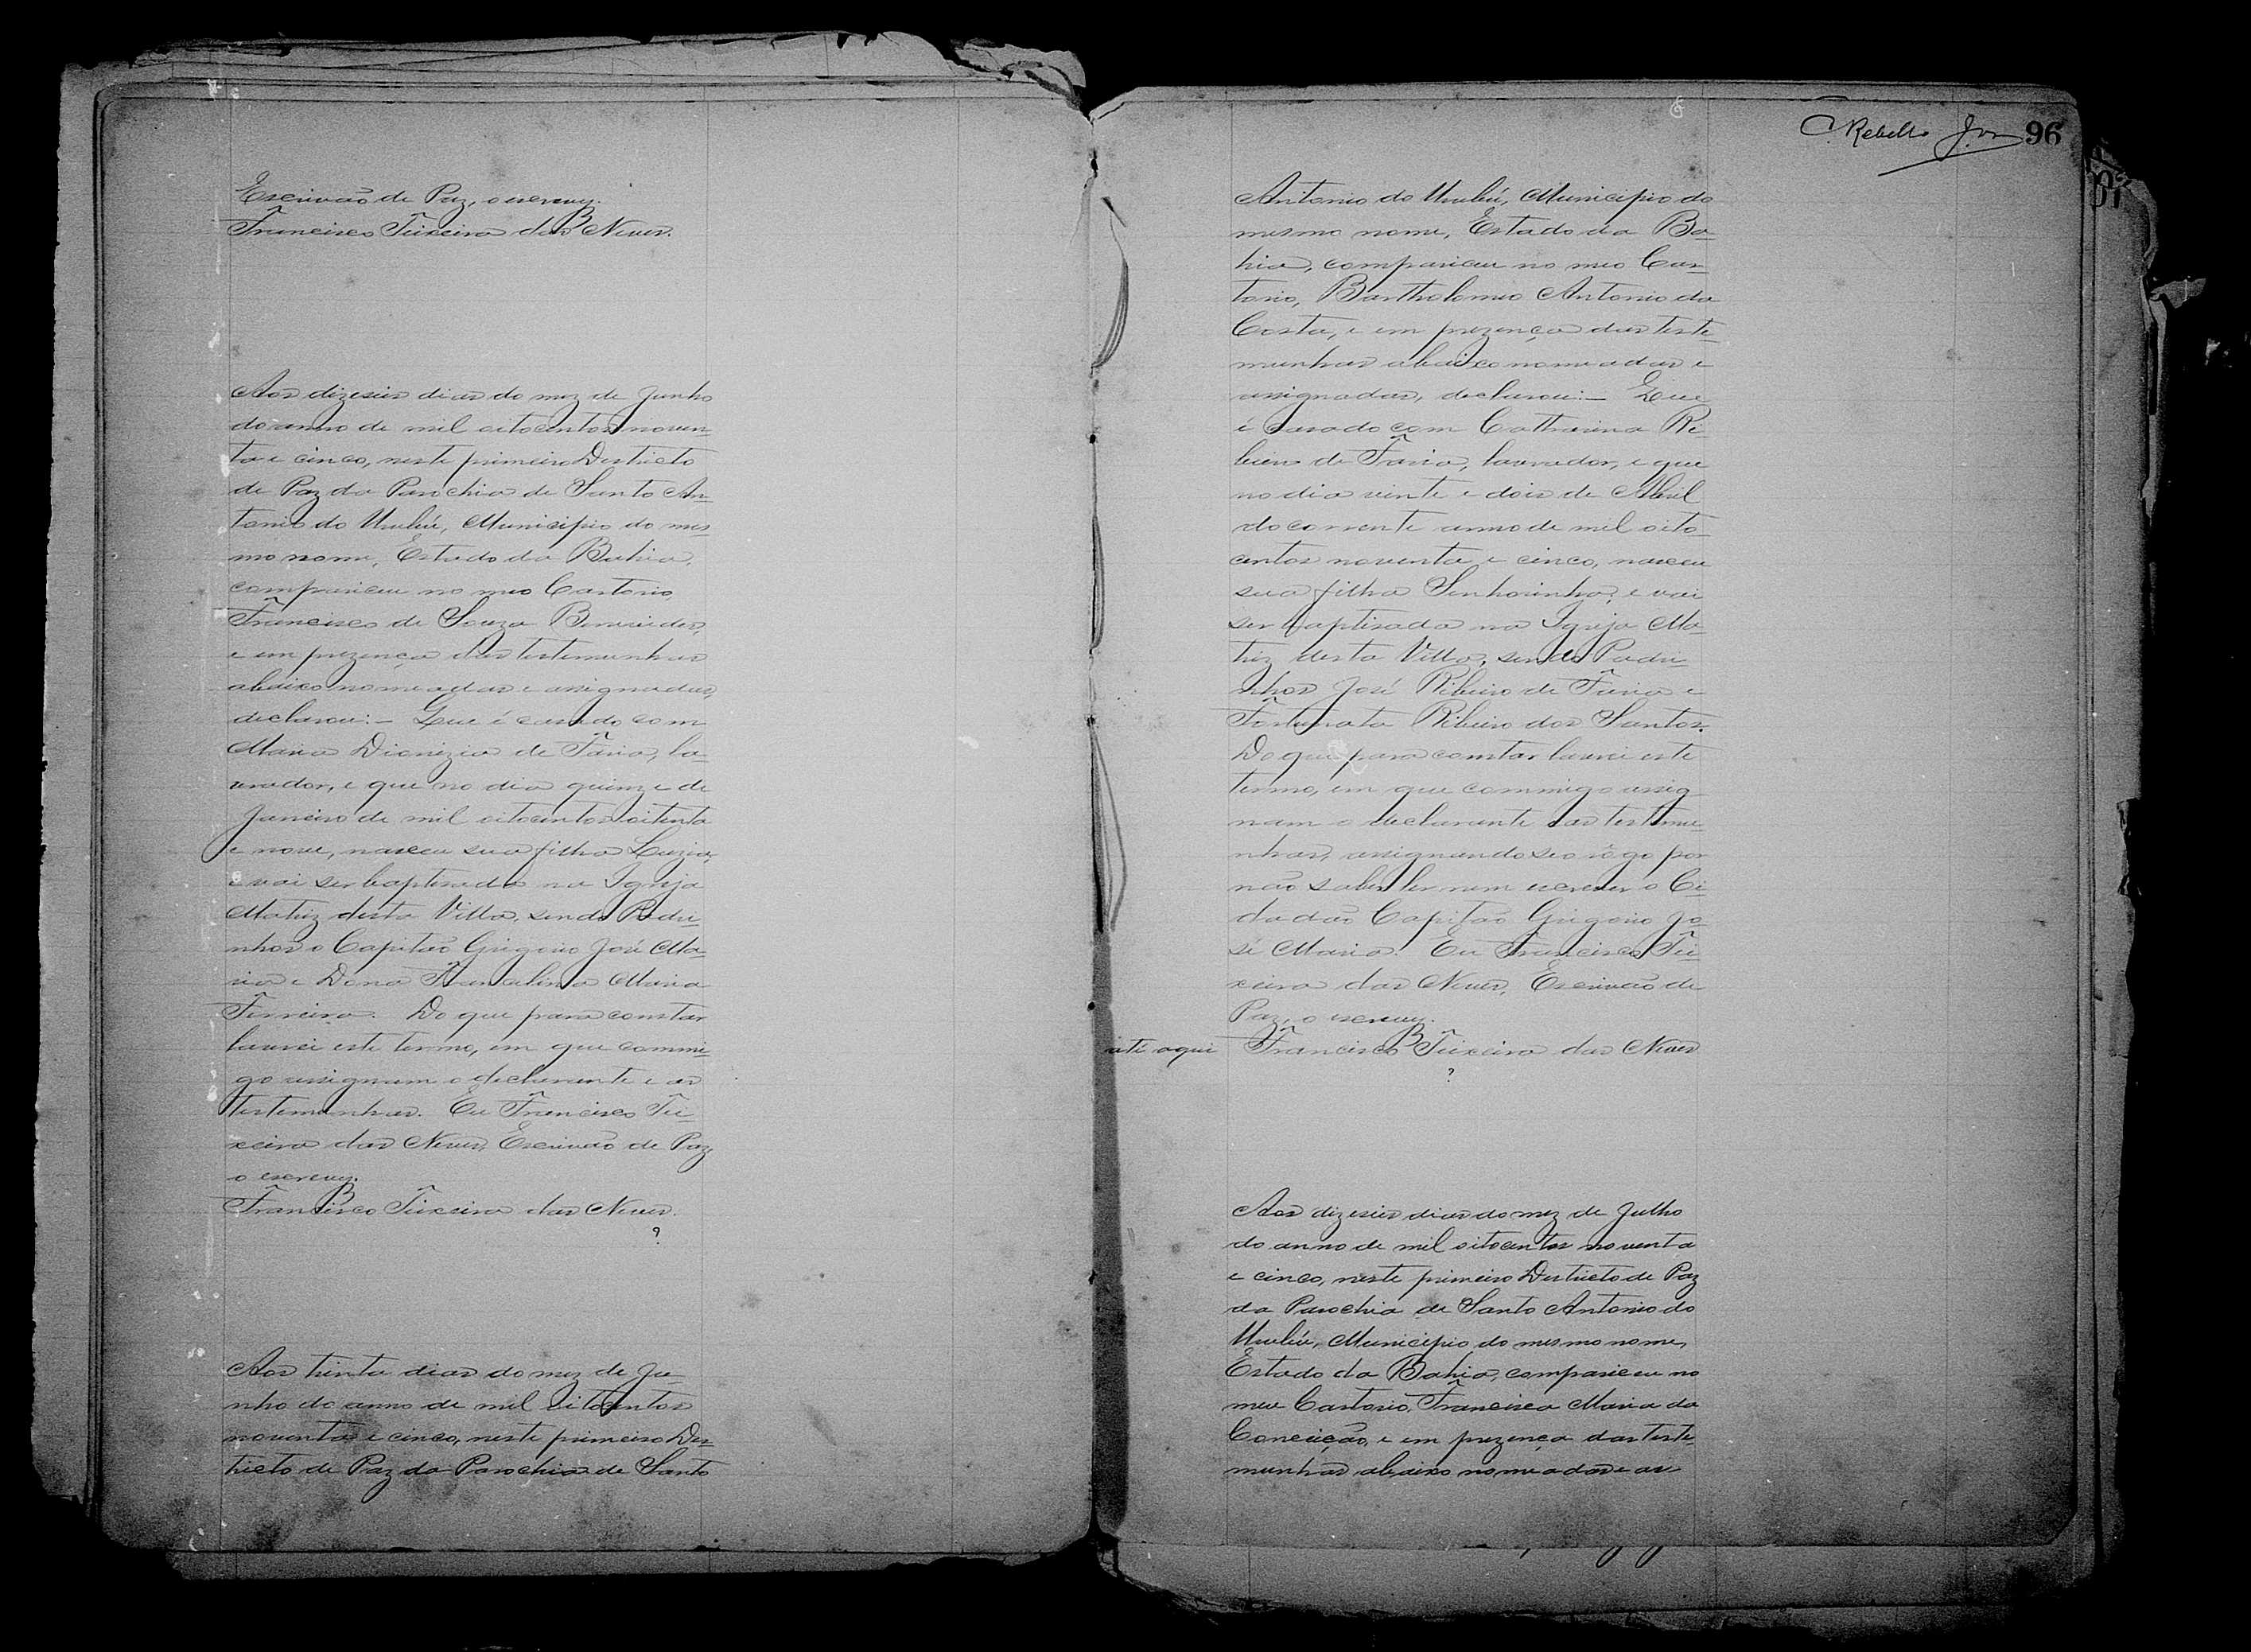 Escrivão de Paz, o escrevy.
Francisco Teixeira das Neves.
Aos dizeseis dias do mez de Junho
do anno de mil oitocentos noven-
ta e cinco, neste primeiro Destricto
de Paz da Parochia de Santo An-
tonio do Urubú, Municipio do mes-
mo nome, Estado da Bahia,
compareceu no meo Cartorio,
Francisco de Souza Benevides,
e em prezença das testemunhas
abaixo nomeadas e assignadas,
declarou:- Que é casado com
Maria Dionizia de Faria, la-
vrador, e que no dia quinze de
Janeiro de mil oitocentos oitenta
e nove, nasceu sua filha Luzia,
e vai ser baptisada na Igreja
Matriz desta Villa, sendo Padri-
nhos o Capitão Grigorio José Ma-
ria e Dona Maria
Ferreira. Do que para constar
lavrei este termo, em que commi-
go assignam o declarante e as
testemunhas. Eu Francisco Tei-
xeira das Neves, Escrivão de Paz
o escrevy.
Francisco Teixeira das Neves.
?
Aos trinta dias do mez de Ju-
nho do anno de mil oitocentos
noventa e cinco, neste primeiro Des-
tricto de Paz da Parochia de Santo
C. Rebello Jor 96
Antonio do Urubú, Municipio do
mesmo nome, Estado da Ba-
hia, compareceu no meo Car-
torio, Bartholomeo Antonio da
Costa, e em prezença das teste-
munhas abaixo nomeadas e
assignadas, declarou:- Que
é Casado com Catharina Ri-
beiro de Faria, lavrador, e que
no dia vinte e dois de Abril
do corrente anno de mil oito-
centos noventa e cinco, nasceu
sua filha Senhorinha, e vai
ser baptisada na Igreja Ma-
triz desta Villa, sendo Padri-
nhos José Ribeiro de Faria e
Fortunata Ribeiro dos Santos.
Do que para constar lavrei este
termo, em que commigo assig-
nam o declarante e as testemu-
nhas, assignando seo rôgo por
não saber ler nem escrever o Ci-
dadão Capitão Grigorio Jo-
sé Maria. Eu Francisco Tei-
xeira das Neves, Escrivão de
Paz, o escrevy.
até aqui Francisco Teixeira das Neves
?
Aos dizeseis dias do mez de Julho
do anno de mil oitocentos noventa
e cinco, neste primeiro Destricto de Paz
da Parochia de Santo Antonio do
Urubú, Municipio do mesmo nome,
Estado da Bahia, compareceu no
meu Cartorio, Francisca Maria da
Conceição, e em prezença das teste-
munhas abaixo nomeadas e as-